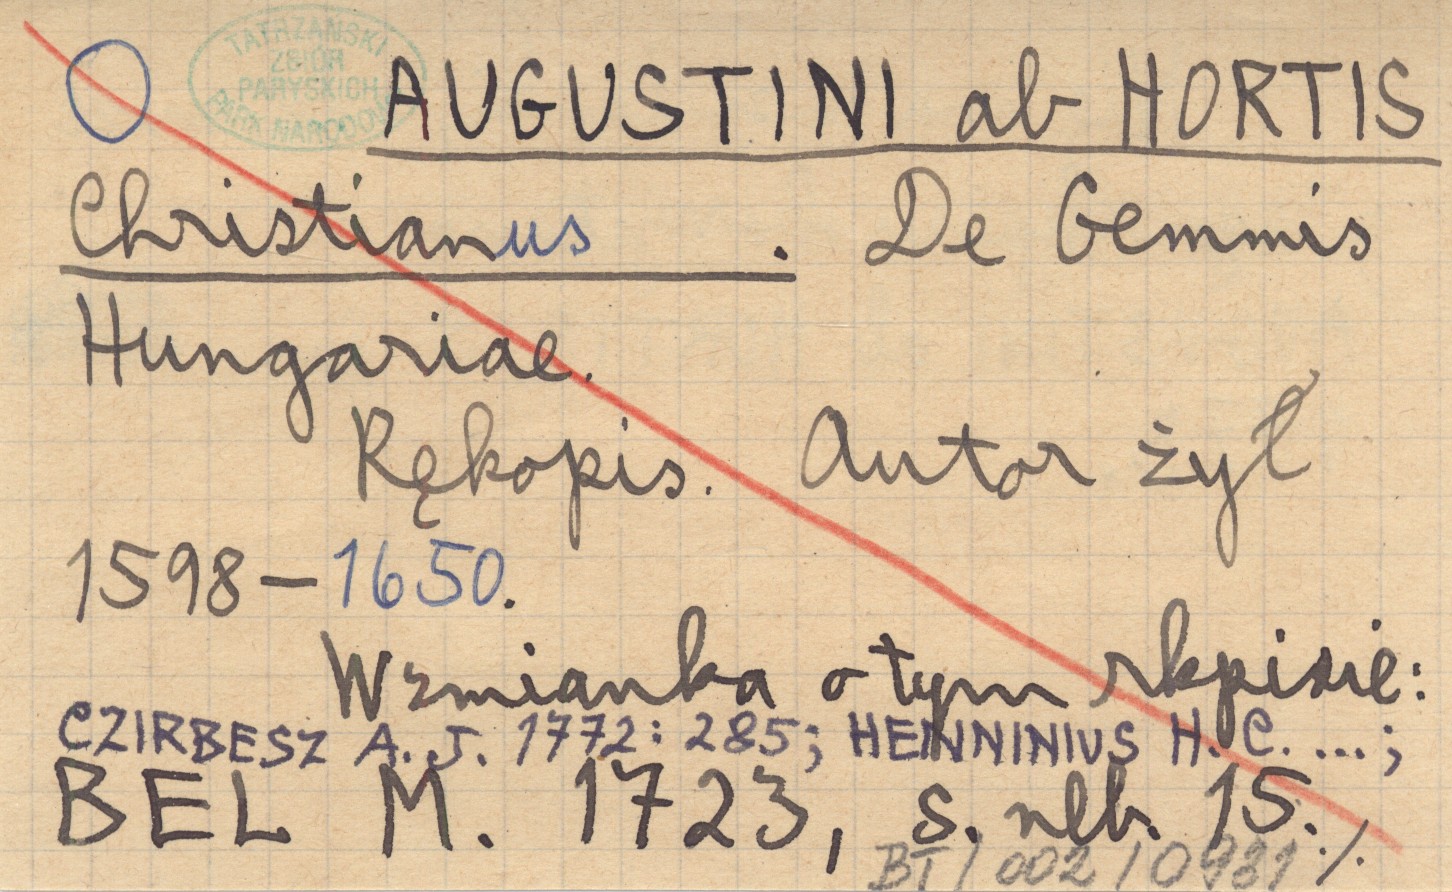 TATRZAŃSKI
ZBIÓR
PARYSKICH
PARK NARODOWY
AUGUSTINI ab HORTIS
Christianus . De Gemmis
Hungariae.
Rękopis. Autor żył
1598–1650.
Wzmianka o tym rkpisie:
CZIRBESZ A. J. 1772: 285; HENNINIUS H. C. ...;
BEL M. 1723, s. nlb. 15. ./.
BT/002/0931